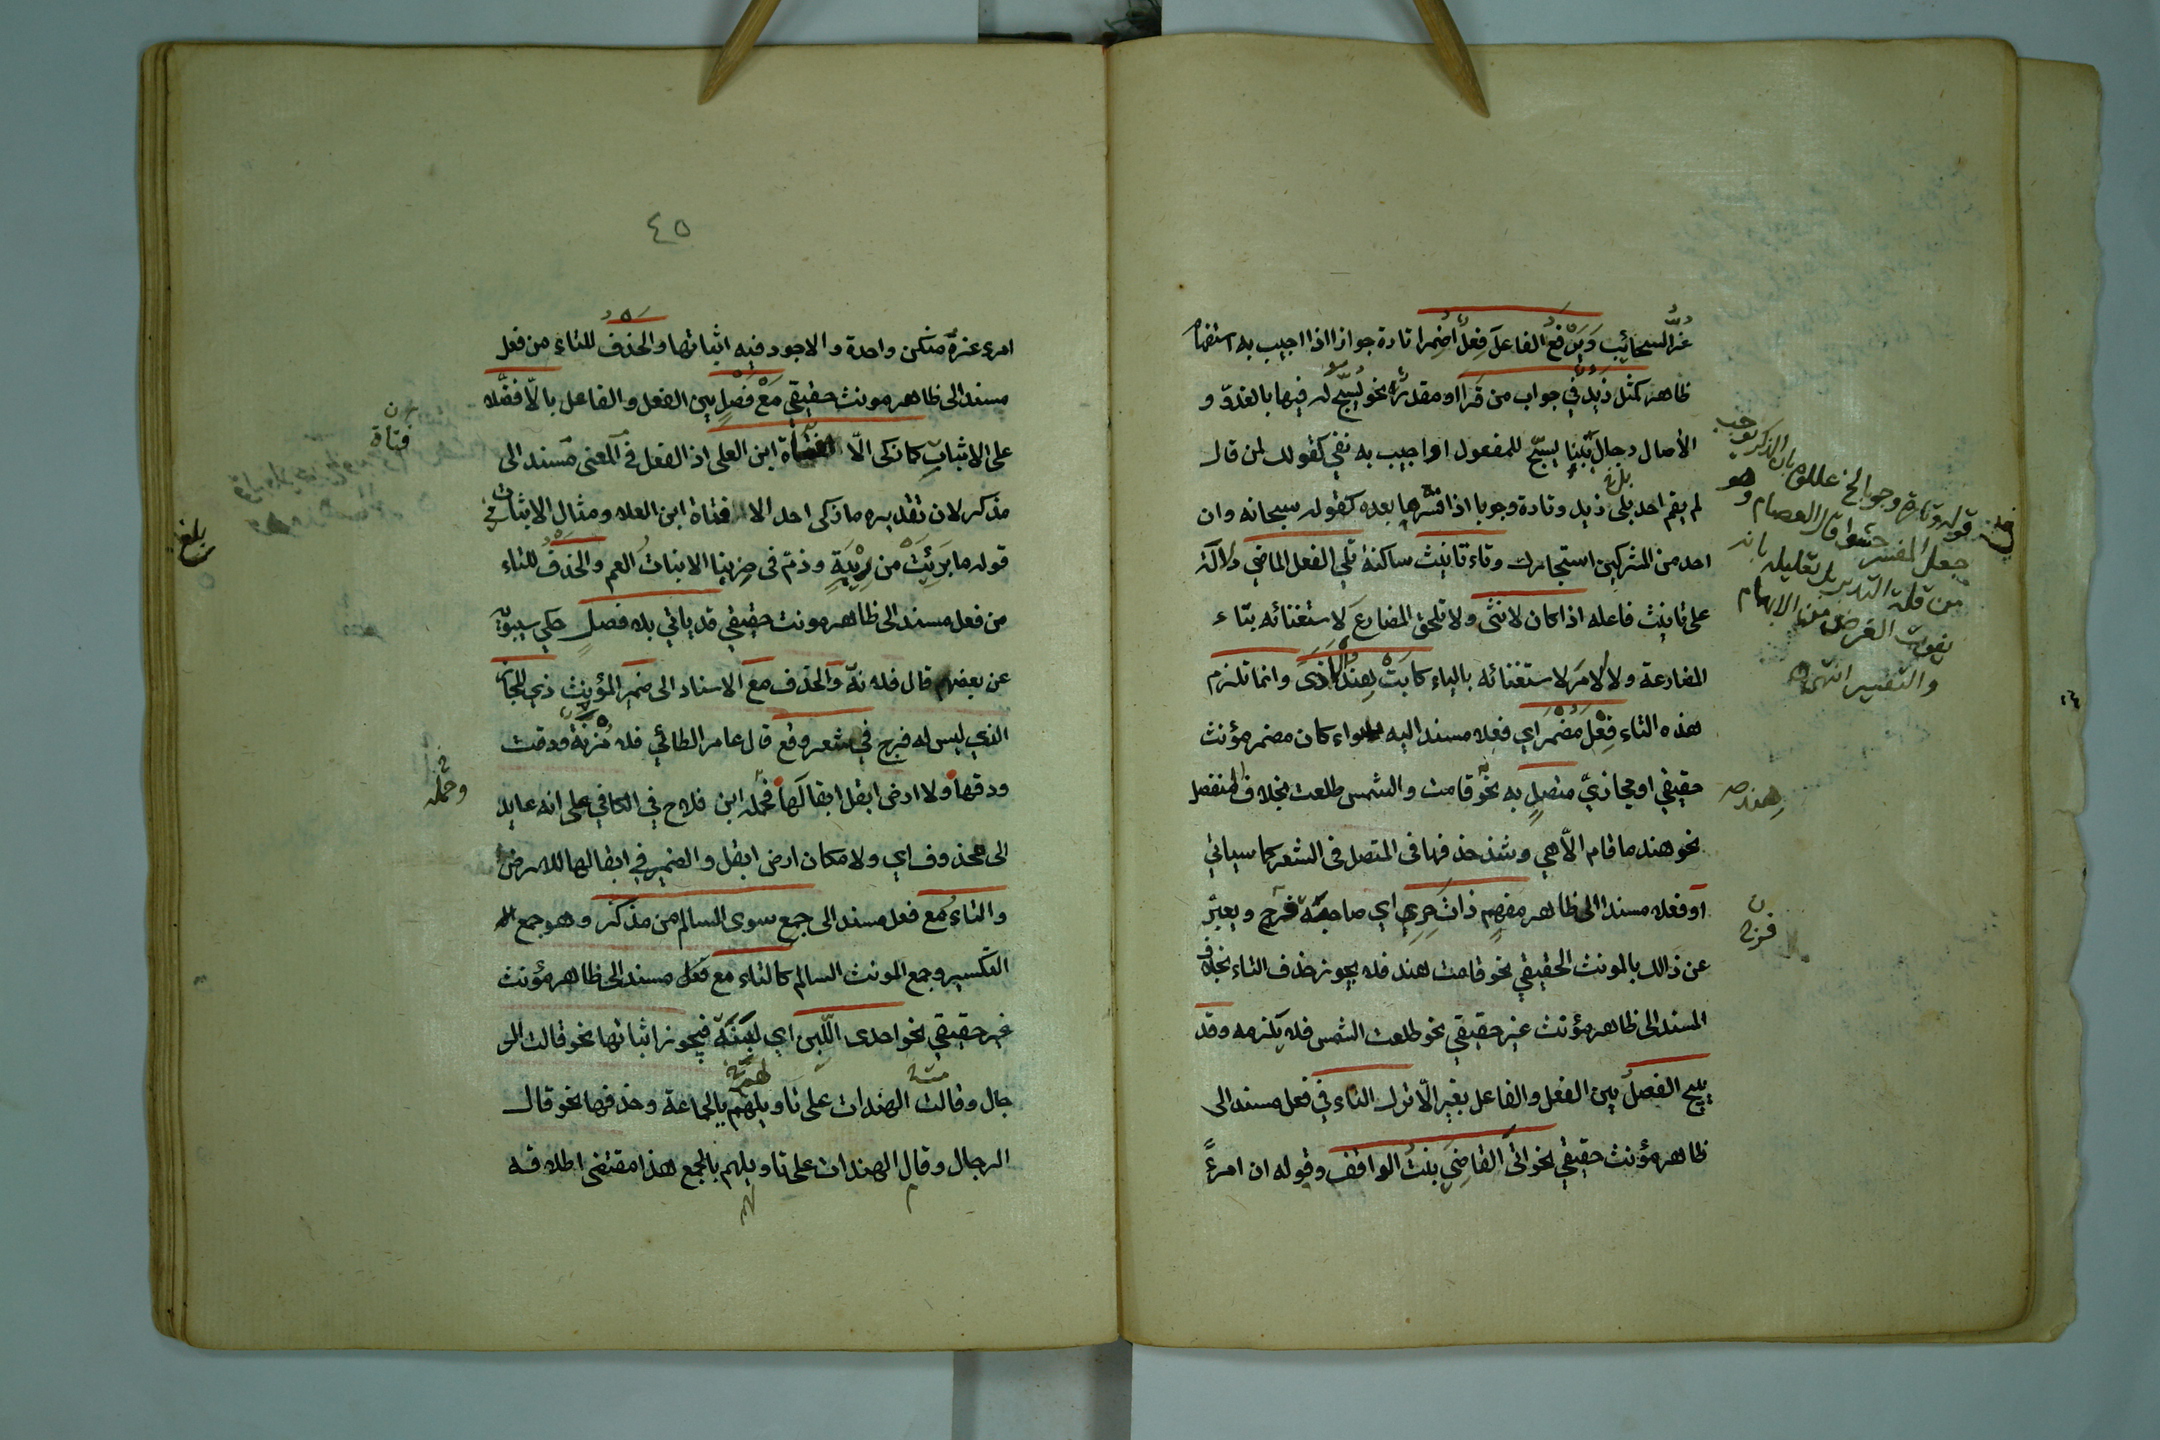 غرّ السحائب ويرفع الفاعل فعل اضمرا تارة جوازا اذا اجيب به استفهام
ظاهر كمثل زيد في جواب من قرا او مقدر نحو يسبّح له فيها بالغدوّ و
الأصال رجال ببناء يسبّح للمفعول او اجيب به نفي كقولك لمن قال
لم يقم احد بلى زيد وتارة وجوبا اذا فسر بما بعده كقوله سبحانه وان
احد من المشركين استجارك وتاء تانيث ساكنة تلي الفعل الماضي دلالة
على تانيث فاعله اذا كان لانثى ولا تلحق المضارع لاستغنائه بتاء
المضارعة ولا الامر لاستغنائه بالياء كابت هند الاذى وانما تلزم
هذه التاء فعل مضمر اي فعلا مسندا اليه سواء كان مضمر مؤنث
حقيقي او مجازيّ متصل به نحو قامت والشمس طلعت بخلاف المنفصل
نحو هند ما قام الّا هي وشذ حذفها في المتصل في الشعر كما سياتي
او فعلا مسندا الى ظاهر مفهم ذات حر اي صاحبة فرج ويعبّر
عن ذالك بالمونث الحقيقي نحو قامت هند فلا يجوز حذف التاء بخلاف
المسند الى ظاهر مؤنث غير حقيقي نحو طلعت الشمس فلا يلزمه وقد
يبيح الفصل بين الفعل والفاعل بغير الّا ترك التاء في فعل مسند الى
ظاهر مؤنث حقيقي نحو اتى القاضي بنت الواقف وقوله ان امرءً
قوله وتارة وجوبا الخ علله بان الذكر يوجب
جعل المفسر حشوا قال العصام وهو
من قلة التدبر بل تعليله بانه
يفوت الغرض من الابهام
والتفسير انتهى
هند صح
فرج
٤٥
امرء غره منكن واحدة والاجود فيه اثباتها والحذف للتاء من فعل
مسند الى ظاهر مونث حقيقي مع فصل بين الفعل والفاعل بالّا فضّلا
على الاثبات كما زكى الّا فتاة ابن العلى اذ الفعل في المعنى مسند الى
مذكر لان تقديره ما زكى احد الا فتاة ابن العلا ومثال الاثبات في
قوله ما برئت من ريبة وذم في حربنا الا بنات العم والحذف للتاء
من فعل مسند الى ظاهر مونث حقيقي قد ياتي بلا فصل حكي سيبويه
عن بعضهم قال فلانة والحذف مع الاسناد الى ضمير المؤنث ذي المجاز
الذي ليس له فرج في شعر وقع قال عامر الطائي فلا مزنة ودقت
ودقها ولا ارض ابقل ابقالها فحمله ابن فلاح في الكافي على انه عايد
الى محذوف اي ولا مكان ارض ابقل والضمير في ابقالها للارض
والتاء مع فعل مسند الى جمع سوى السالم من مذكر وهو جمع
التكسير وجمع المونث السالم كالتاء مع فعل مسند الى ظاهر مؤنث
غير حقيقي نحو احدى اللّبن اي لبنة فيجوز اثباتها نحو قالت الر
جال وقالت الهندات على تاويلهم بالجماعة وحذفها نحو قال
الرجال وقال الهندات على تاويلهم بالجمع هذا مقتضى اطلاقه
فتاة
وحمله
بلغ